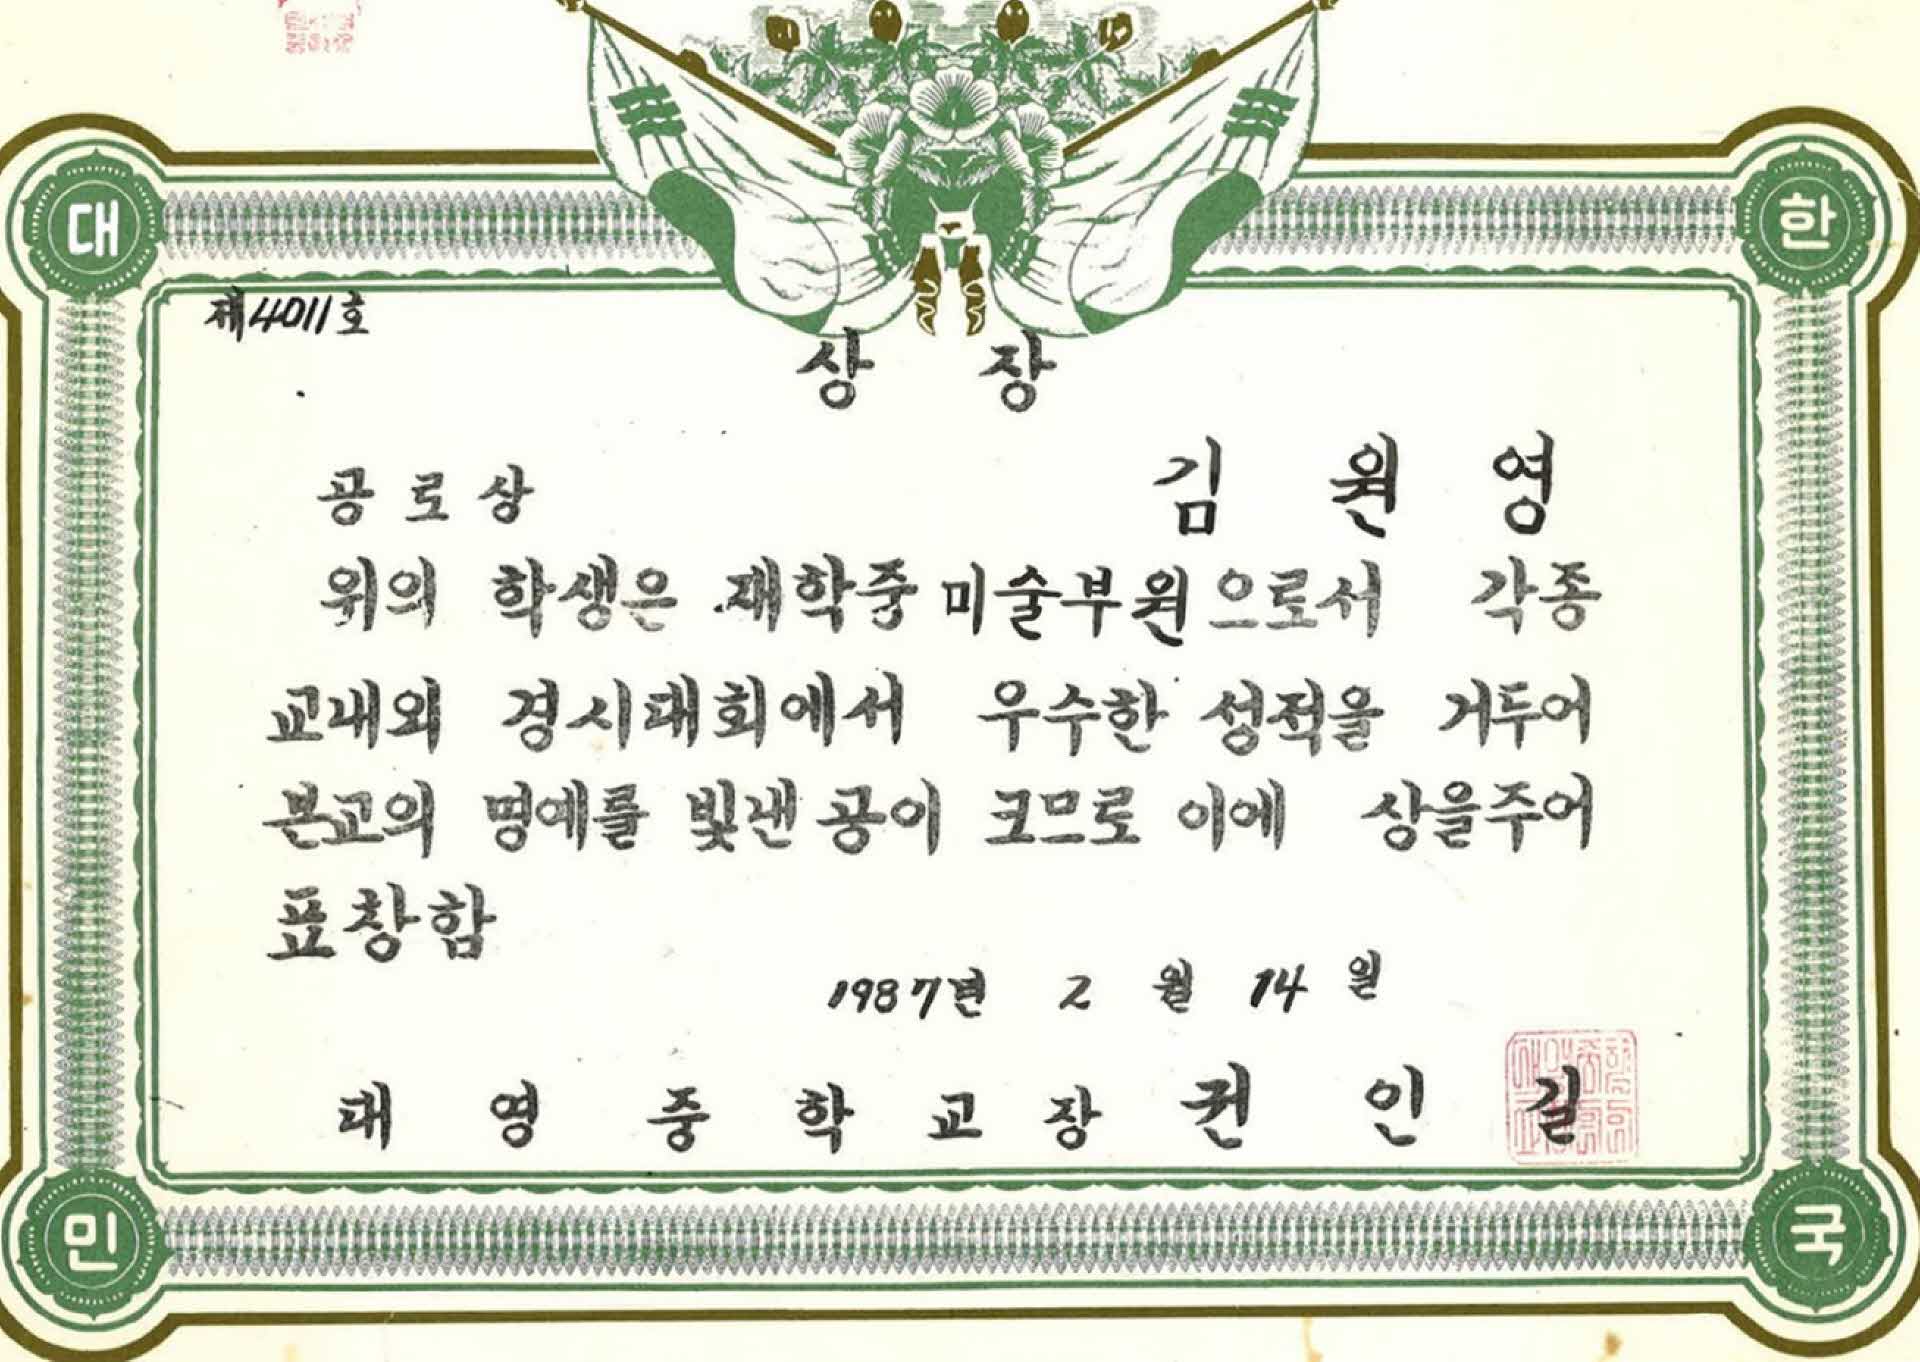 대 한
제4011호
상 장
공로상 김원영
위의 학생은 재학중 미술부원으로서 각종
교내외 경시대회에서 우수한 성적을 거두어
본교의 명예를 빛낸 공이 크므로 이에 상을주어
표창함
1987년 2월 14일
대영중학교장 권인길
민 국